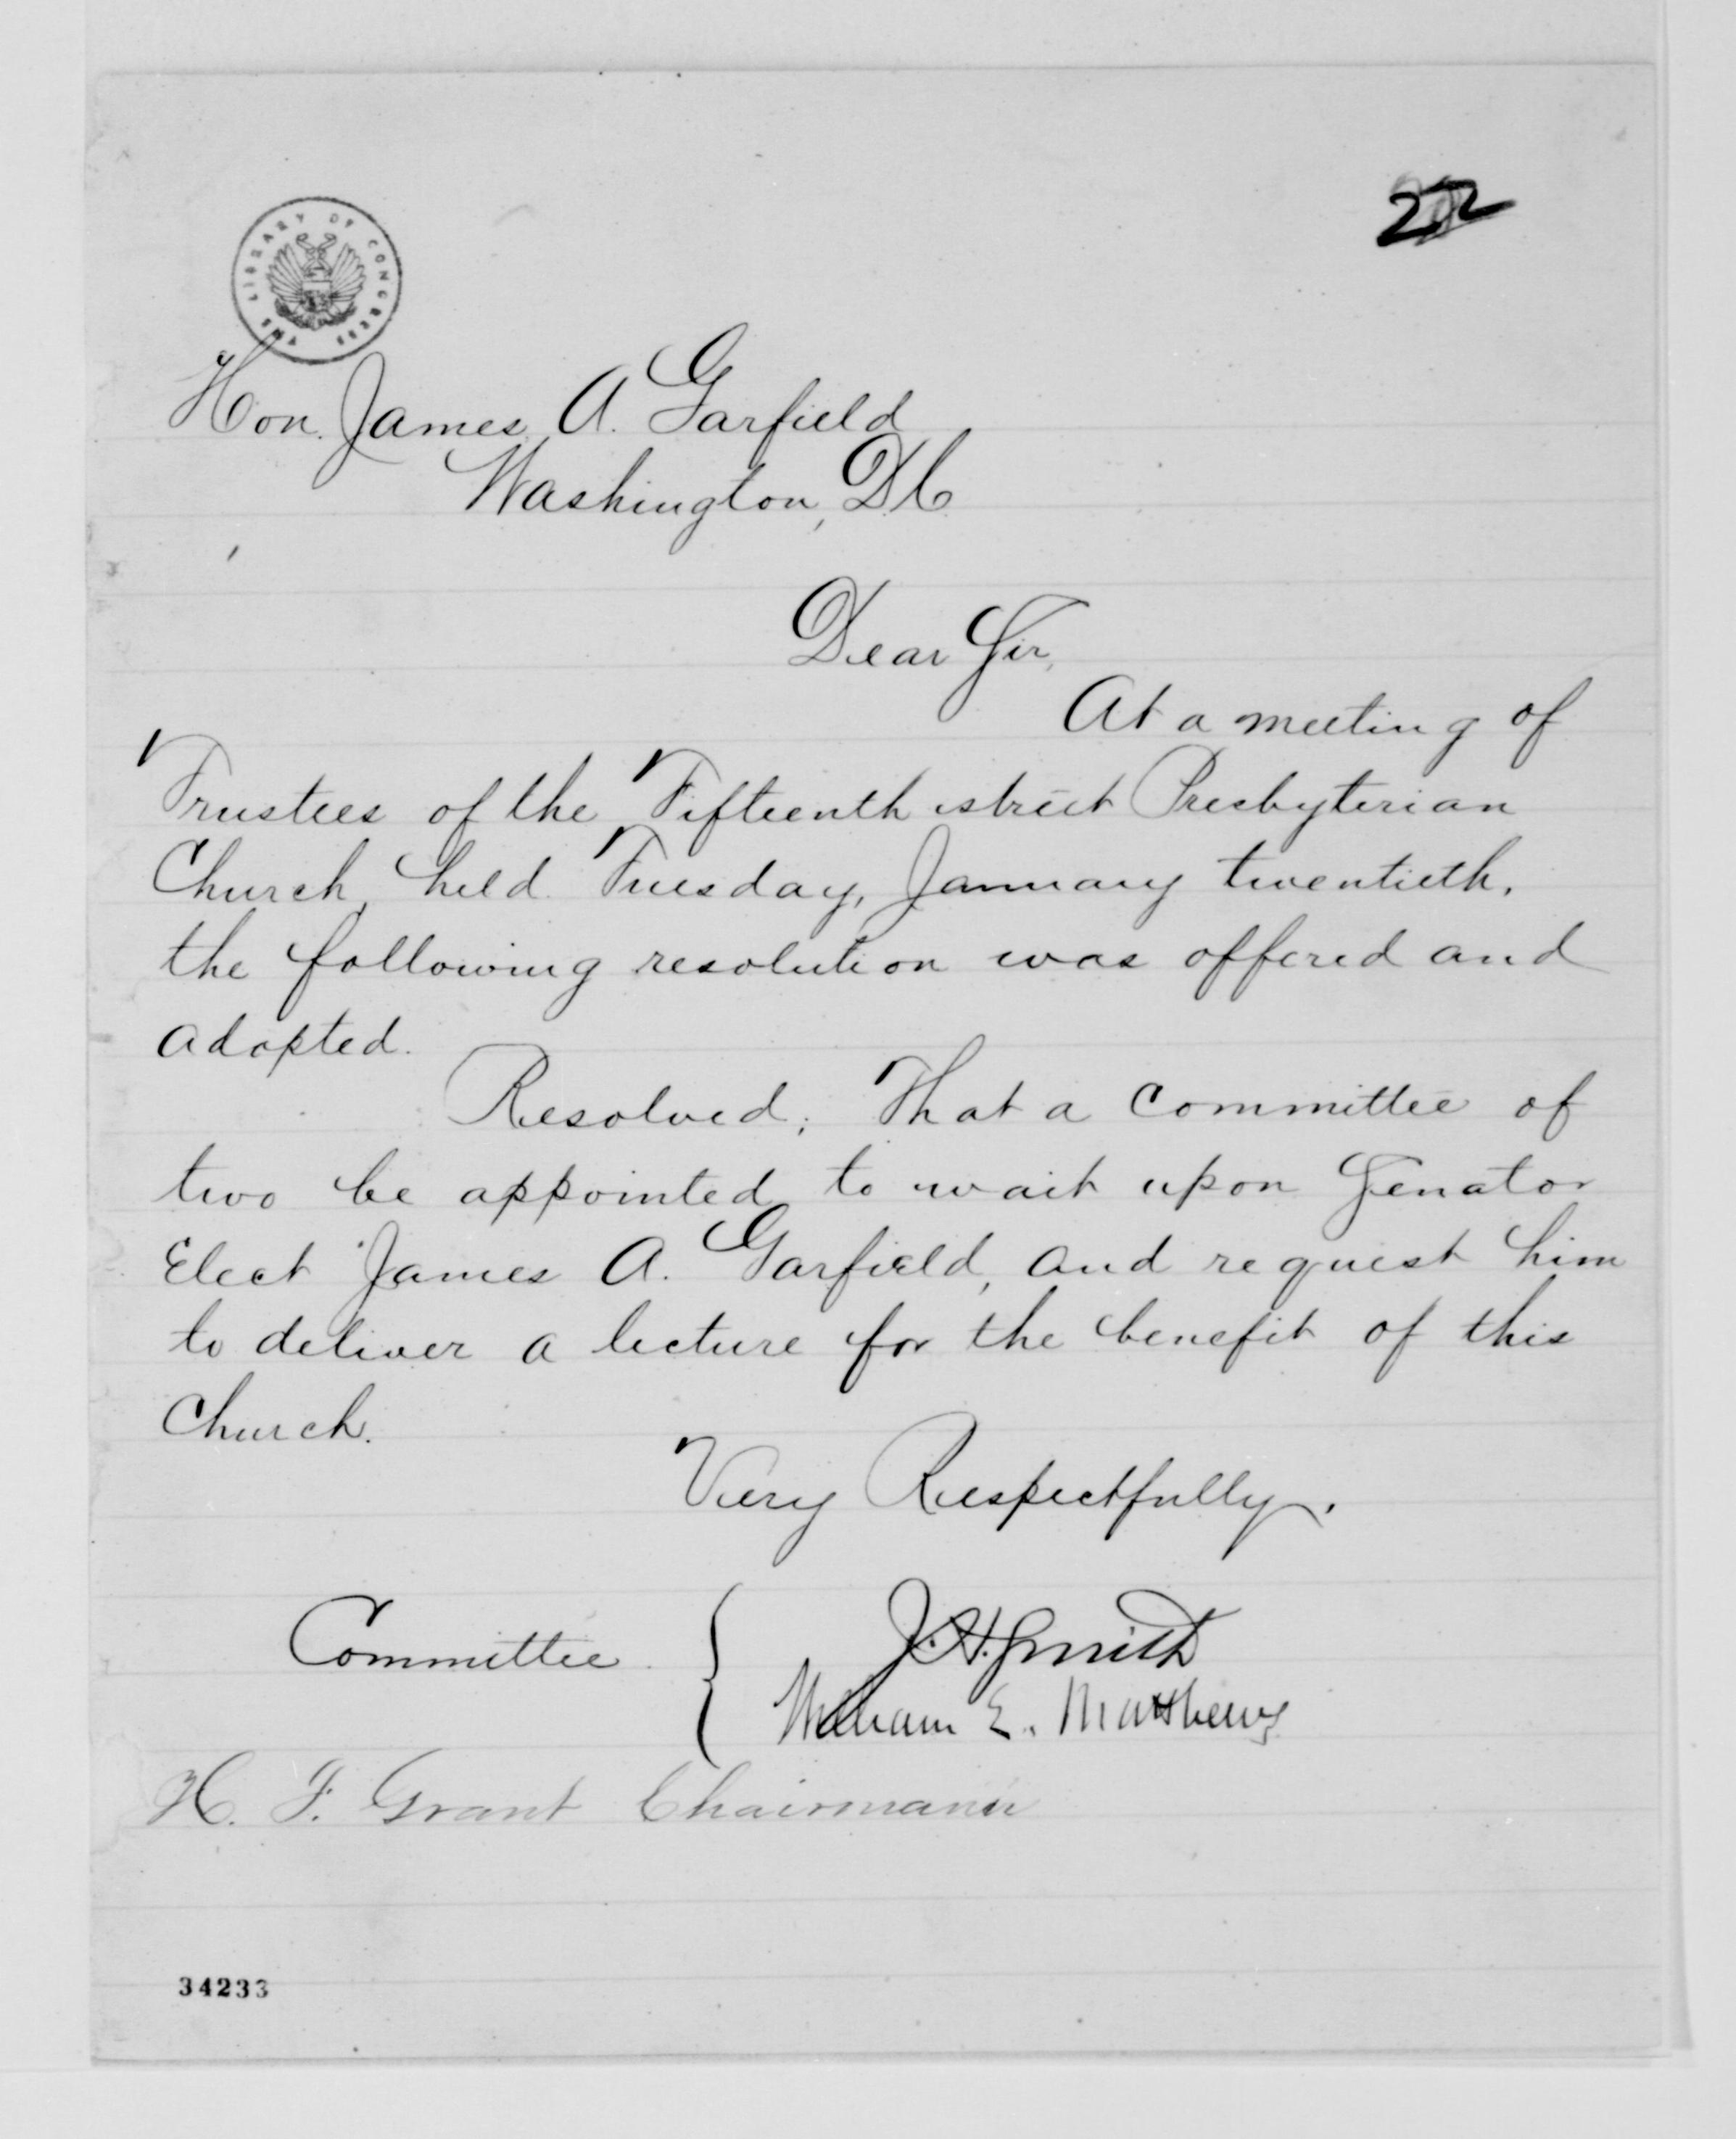 THE LIBRARY OF CONGRESS
Hon. James A. Garfield
Washington, D.C.
Dear Sir,
At a meeting of
Trustees of the Fifteenth street Presbyterian
Church, held Tuesday, January twentieth,
the following resolution was offered and
adopted.
Resolved; That a committee of
two be appointed to wait upon Senator
Elect James A. Garfield, and request him
to deliver a lecture for the benefit of this
Church.
Very Respectfully,
Committee { J. H. Smith
William E. Matthews
H. F. Grant Chairmann
34233